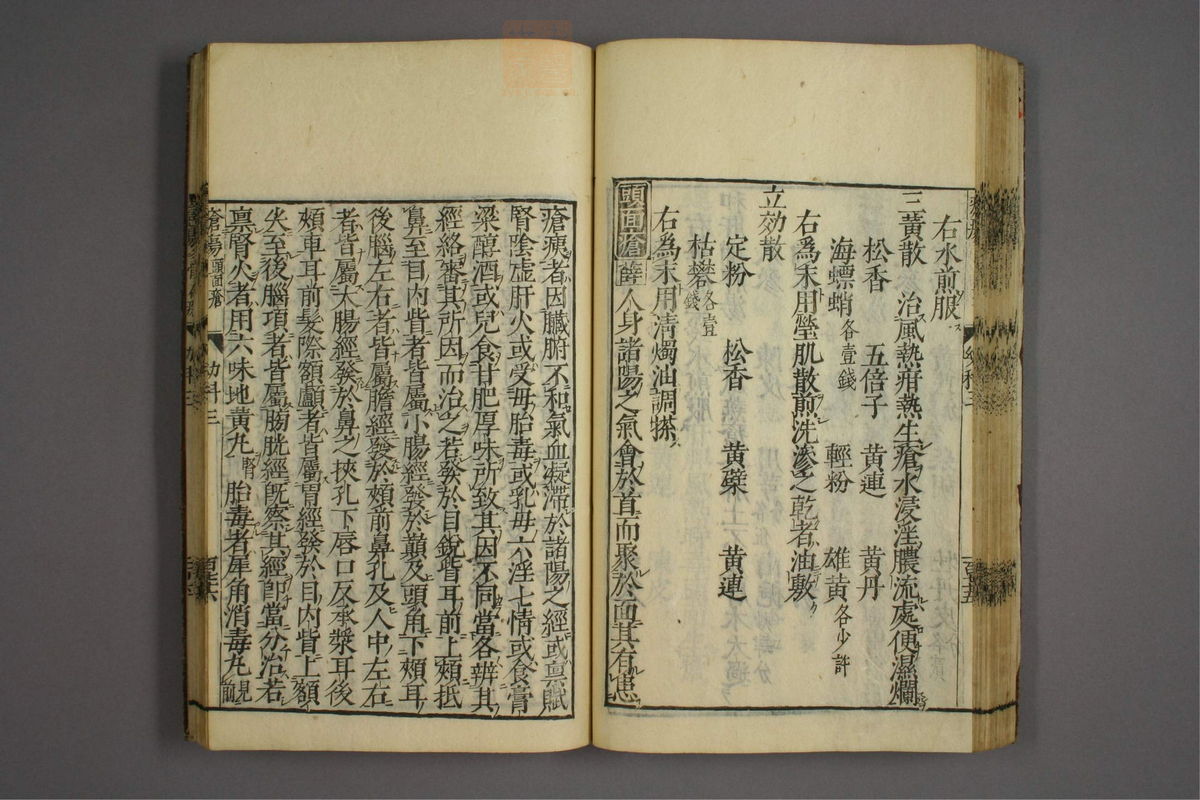 右水煎服
三黃散　治風熱疳熱生瘡水浸淫膿流處便濕爛
松香　五倍子　黃連　黃丹
海螵蛸各壹錢　輕粉　雄黃各少許
右為末用瑩肌散煎洗滲之乾者油敷
立効散
定粉　松香　黃蘗　黃連
枯礬各壹錢
右為末用清燭油調搽
頭面瘡　薛　人身諸陽之氣會於首而聚於面其有患
瘡痍者因臟腑不和氣血凝滯於諸陽之經或稟賦
腎陰虛肝火或受母胎毒或乳母六淫七情或食膏
粱醇酒或兒食甘肥厚味所致其因不同當各辨其
經絡審其所因而治之若發於目銳眥耳前上頰抵
鼻至目內眥者皆屬小腸經發於巔及頭角下頰耳
後腦左右者皆屬膽經發於頰前鼻孔及人中左右
者皆屬大腸經發於鼻之挾孔下唇口反承漿耳後
頰車耳前髮際額顱者皆屬胃經發於目內眥上額
尖至後腦項者皆屬膀胱經既察其經即當分治若
稟腎火者用六味地黃丸腎　胎毒者犀角消毒丸見前
瘡瘍頭面瘡　幼科三　百五十六